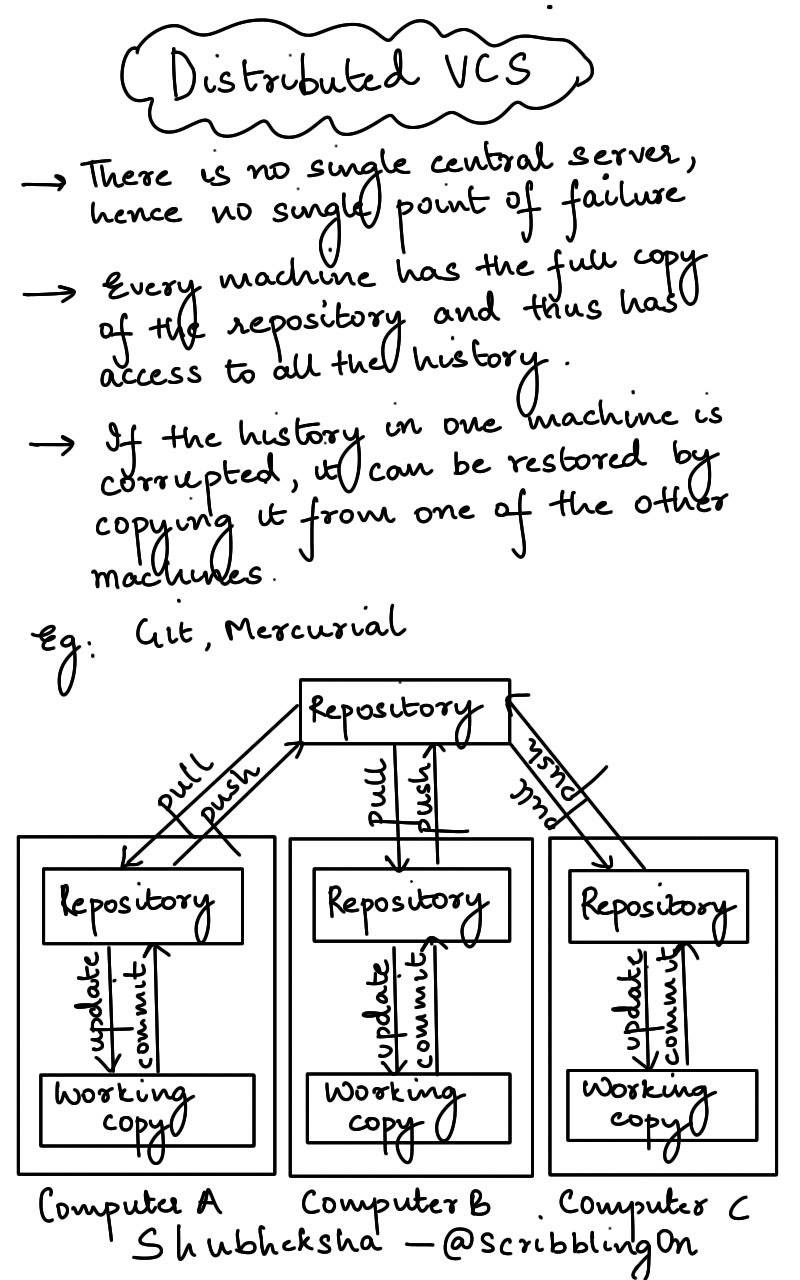 Distributed VCS
→ There is no single central server,
hence no single point of failure
→ Every machine has the full copy
of the repository and thus has
access to all the history.
→ If the history in one machine is
corrupted, it can be restored by
copying it from one of the other
machines.
Eg: Git, Mercurial
Repository
pull
push
pull
push
push
pull
Repository
Repository
Repository
update
commit
update
commit
update
commit
Working
copy
Working
copy
Working
copy
Computer A
Computer B
Computer C
Shubheksha — @ScribblingOn